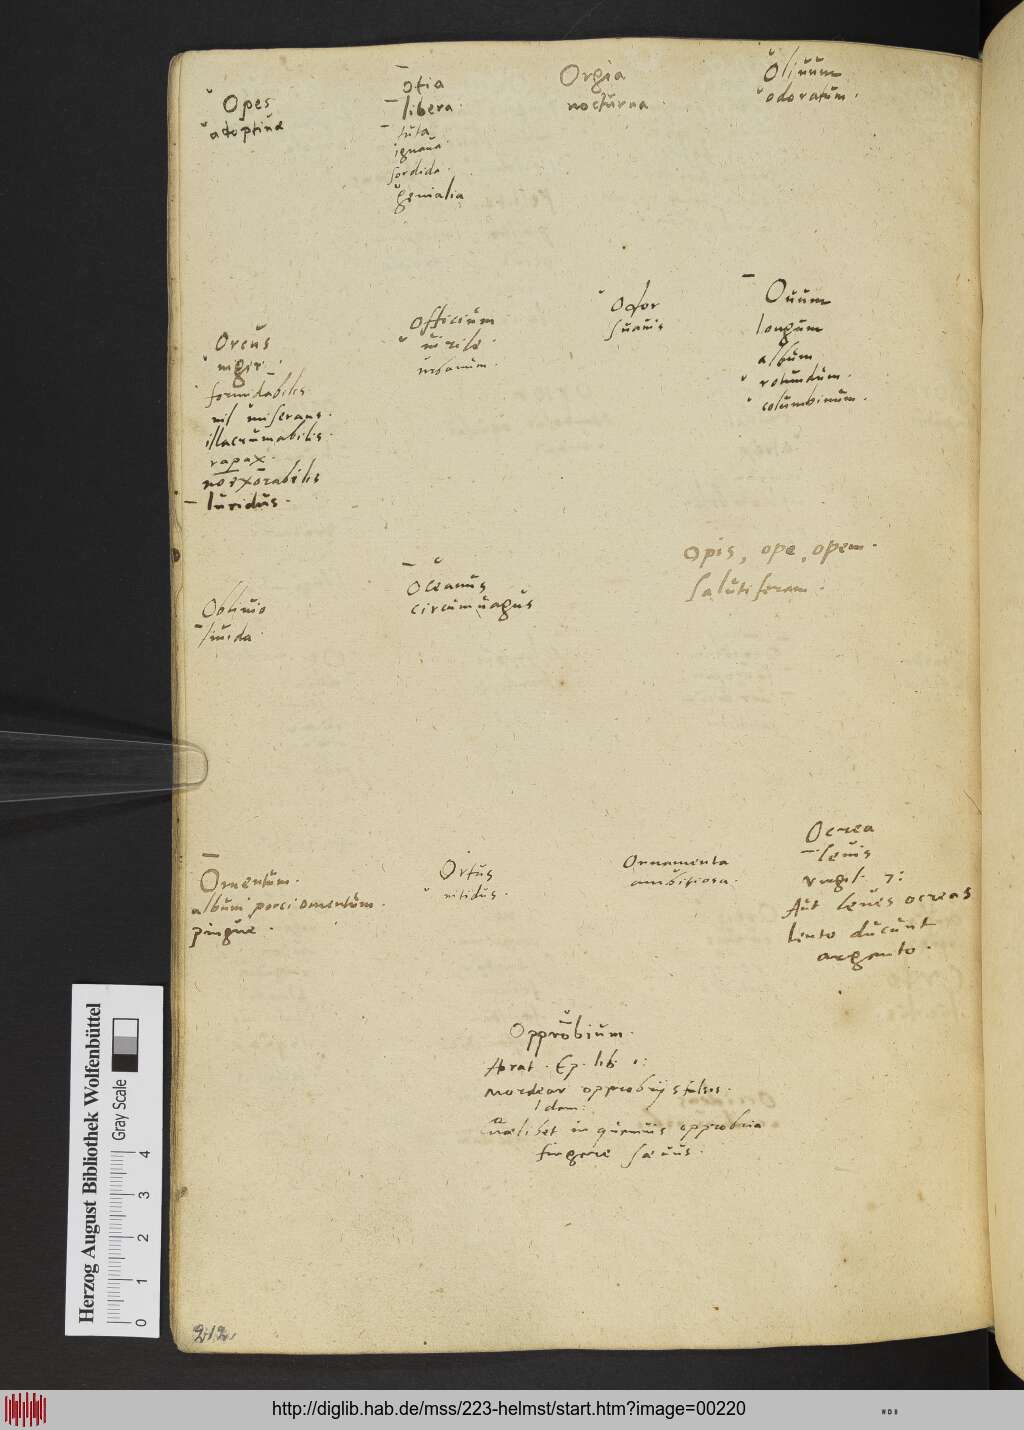 Opes
adoptiuæ
otia
libera.
tuta
ignaua.
sordida.
genialia
Orgia
nocturna.
Oliuum
odoratum.
Orcus
niger.
formidabilis
nil miserans.
illacrumabilis.
rapax.
nō exorabilis
luridus.
Officium
uirile.
urbanum.
Odor
suauis
Ouum
longum
album
rotundum.
columbinum.
Obliuio
liuida.
Oceanus
circumuagus
Opis, ope, opem.
salutiferam.
Omentum.
album porci omentum.
pingue.
Ortus
nitidus.
Ornamenta
ambitiosa.
Ocrea
leuis
Virgil. 7:
Aut leues ocreas
lento ducunt
argento.
Opprobium.
Horat. Ep. lib. 1:
Mordear opprobrijs falsis.
Idem:
Quælibet in quemuis opprobria
fingere sæuus.
212
Herzog August Bibliothek Wolfenbüttel
Gray Scale
0 1 2 3 4
http://diglib.hab.de/mss/223-helmst/start.htm?image=00220